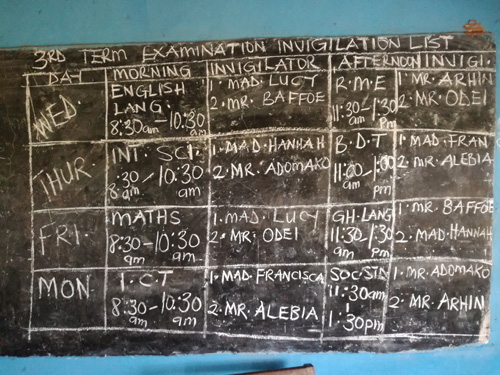 3RD TERM EXAMINATION INVIGILATION LIST
DAY MORNING INVIGILATOR AFTERNOON INVIGI.
WED. ENGLISH LANG. 8:30am - 10:30am 1. MAD. LUCY 2. MR. BAFFOE R.M.E 11:30am - 1:30pm 1. MR. ARHIN 2. MR. ODEI
THUR. INT. SCI. 8:30am - 10:30am 1. MAD. HANNAH 2. MR. ADOMAKO B.D.T 11:00am - 1:00pm 1. MAD. FRAN 2. MR. ALEBIA
FRI. MATHS 8:30am - 10:30am 1. MAD. LUCY 2. MR. ODEI GH. LANG 11:30am - 1:30pm 1. MR. BAFFOE 2. MAD. HANNAH
MON I.C.T 8:30am - 10:30am 1. MAD. FRANCISCA 2. MR. ALEBIA SOC. STD. 11:30am 1:30pm 1. MR. ADOMAKO 2. MR. ARHIN